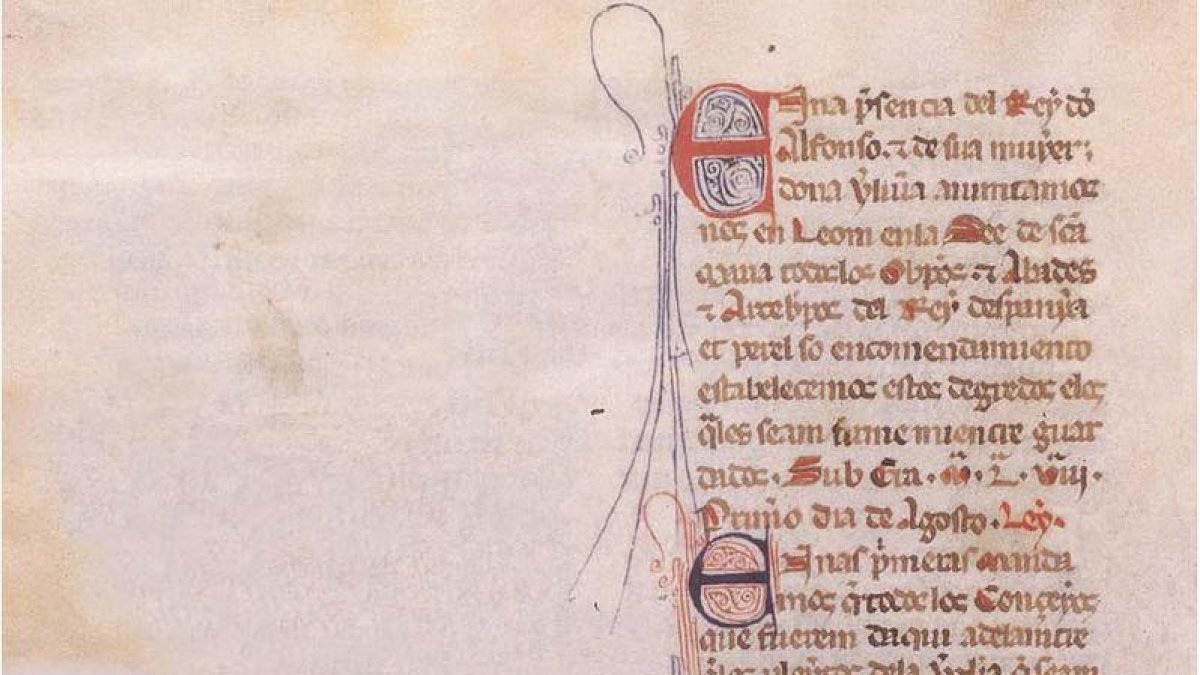 Ena p̃sencia del Rey dõ
Alfonso. ⁊ de sua muyer:
dona ỹluĩa aiuntamos
nos en Leom enla See de scã
maria todoslos Obp̃os. ⁊ Abades
⁊ Arcebp̃os del Rey despanỹa
et perel so encomendamiento
estabelecemos estos degredos elos
q̃les seam firme mientre guar
dados. Sub Era. M̃. L. viii.
Primõ dia de Agosto. Ley.
Enas p̃meras manda
mos q̃ todos los Conçeyos
que fuerem daqui adelantre
dela q̃ seam